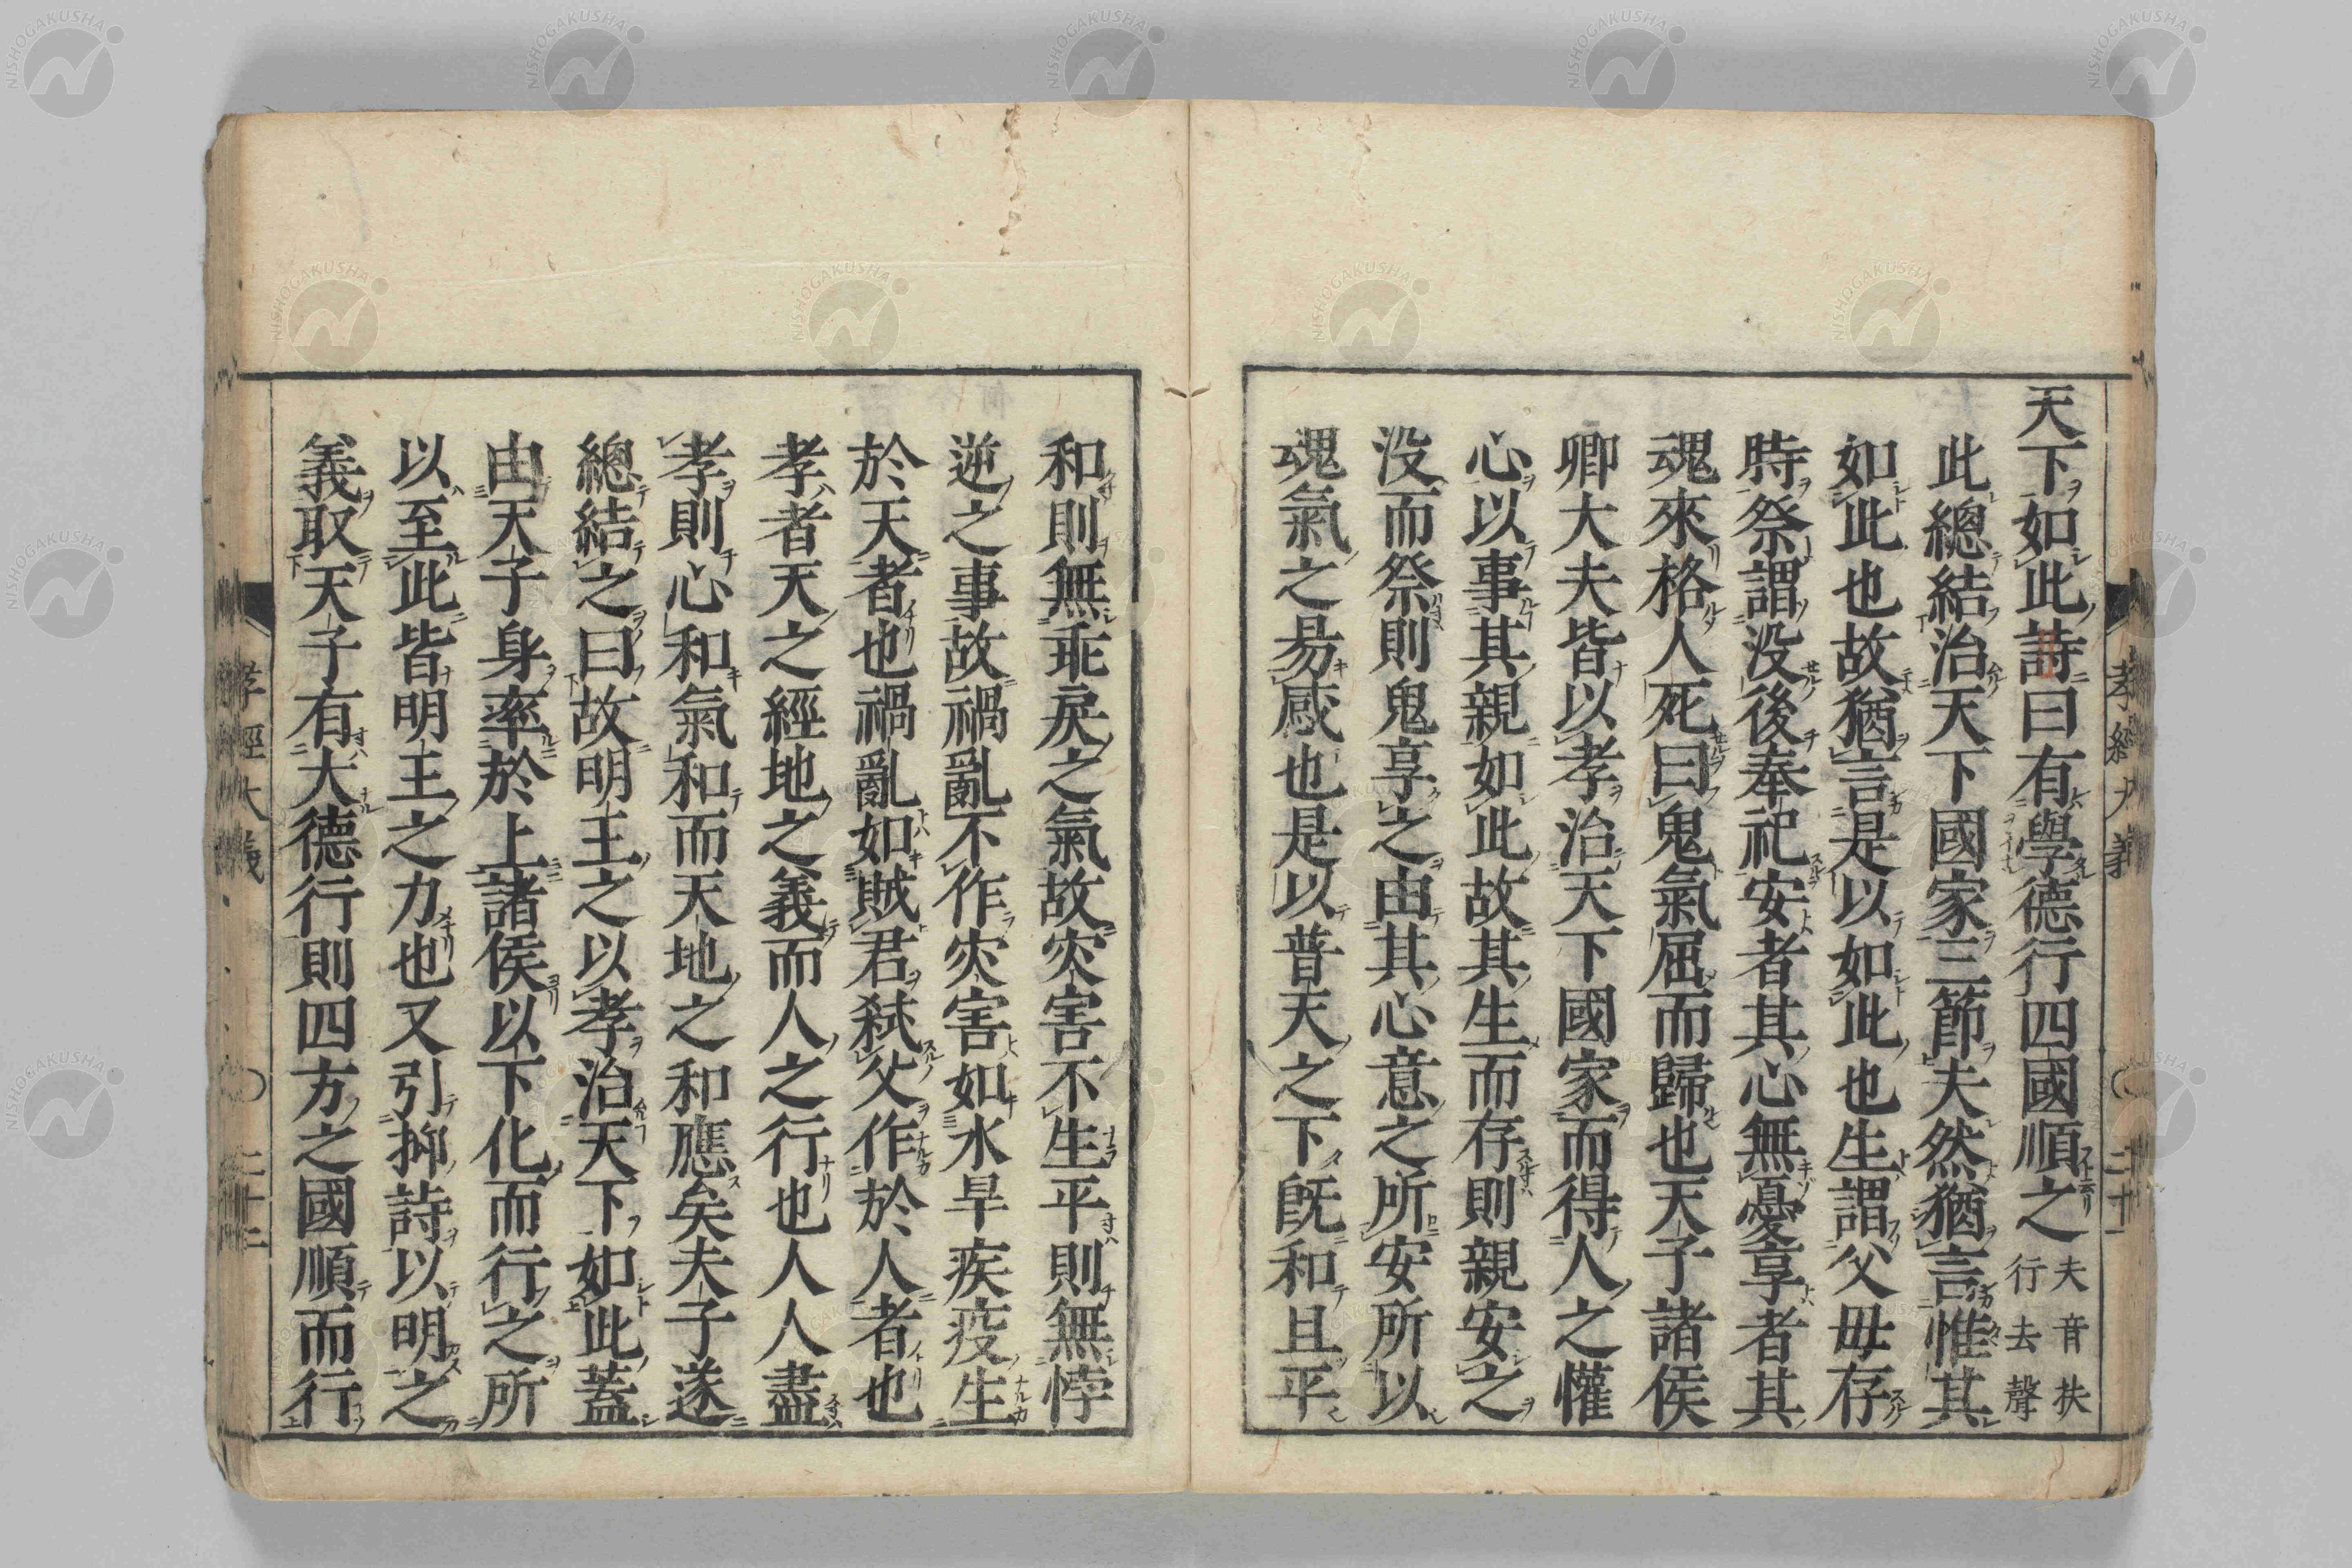 天下如此詩曰有學德行四國順之夫音扶行去聲
此總結治天下國家三節夫然猶言惟其
如此也故猶言是以如此也生謂父母存
時祭謂没後奉祀安者其心無憂享者其
魂來格人死曰鬼氣屈而歸也天子諸侯
卿大夫皆以孝治天下國家而得人之懽
心以事其親如此故其生而存則親安之
没而祭則鬼享之由其心意之所安所以
魂氣之易感也是以普天之下旣和且平
和則無乖戾之氣故灾害不生平則無悖
逆之事故禍亂不作灾害如水旱疾疫生
於天者也禍亂如賊君弑父作於人者也
孝者天之經地之義而人之行也人人盡
孝則心和氣和而天地之和應矣夫子遂
總結之曰故明王之以孝治天下如此蓋
由天子身率於上諸侯以下化而行之所
以至此皆明王之力也又引抑詩以明之
義取天子有大德行則四方之國順而行
孝經大義
二十一
孝經大義
二十二
NISHOGAKUSHA